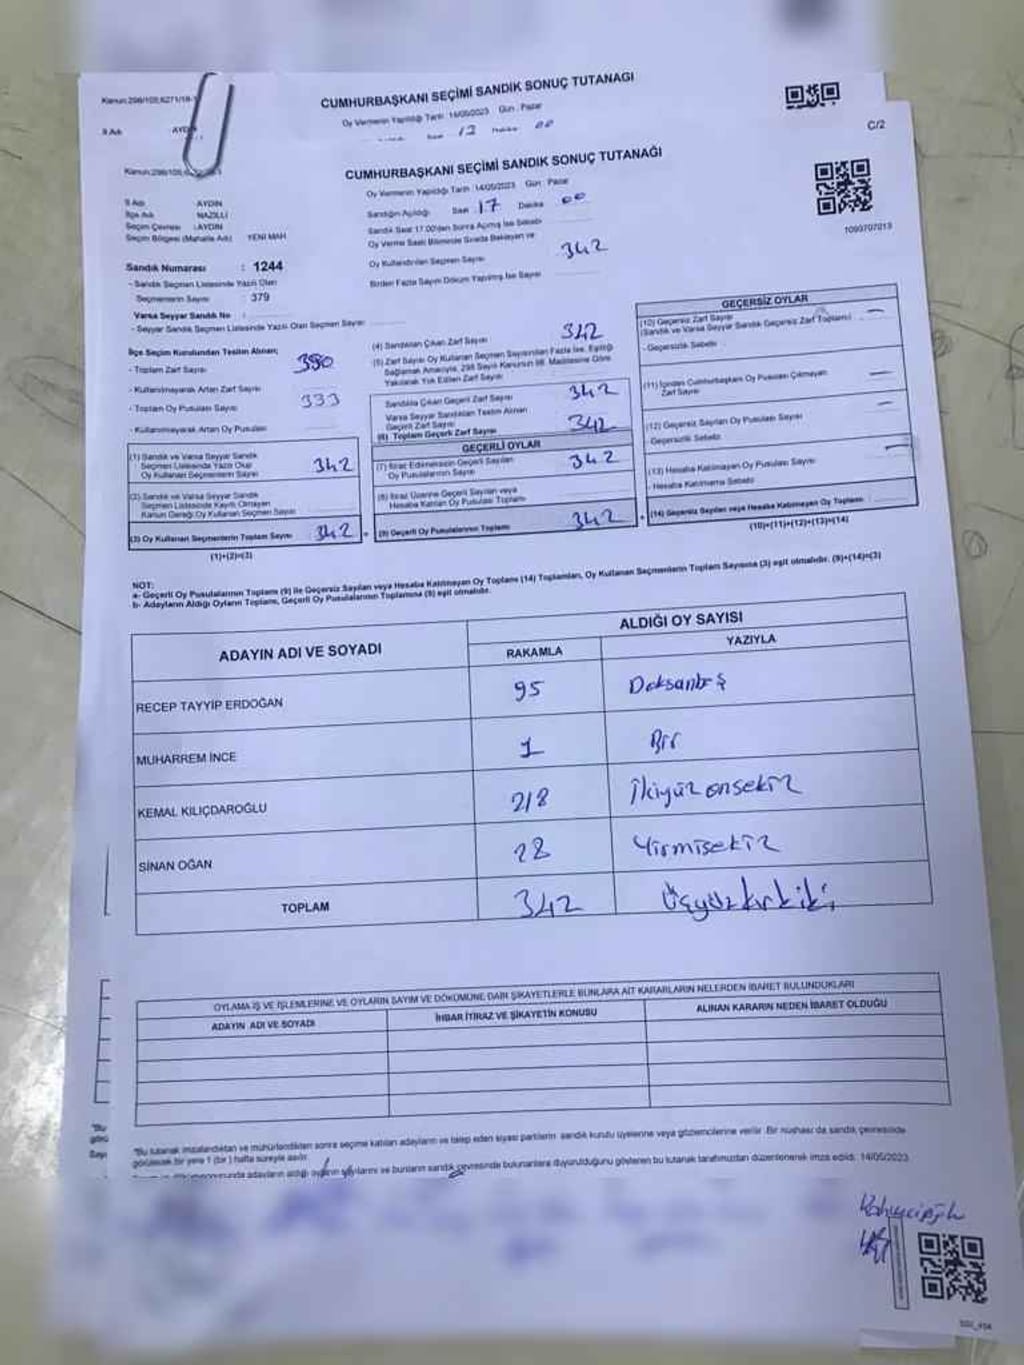 Kanun:298/105;6271/18-1
CUMHURBAŞKANI SEÇİMİ SANDIK SONUÇ TUTANAĞI
Oy Vermenin Yapıldığı Tarih: 14/05/2023 Gün: Pazar
İl Adı AYDIN
C/2
CUMHURBAŞKANI SEÇİMİ SANDIK SONUÇ TUTANAĞI
Oy Vermenin Yapıldığı Tarih :14/05/2023 Gün : Pazar
İl Adı AYDIN
İlçe Adı NAZİLLİ
Seçim Çevresi : AYDIN
Seçim Bölgesi (Mahalle Adı) YENİ MAH
Sandığın Açıldığı Saat 17 Dakika 00
Sandık Saat 17.00'den Sonra Açılmış İse Sebebi
Oy Verme Saati Bitiminde Sırada Bekleyen ve
Oy Kullandırılan Seçmen Sayısı 342
Birden Fazla Sayım Döküm Yapılmış İse Sayısı
1090707013
Sandık Numarası : 1244
- Sandık Seçmen Listesinde Yazılı Olan
Seçmenlerin Sayısı 379
Varsa Seyyar Sandık No :
- Seyyar Sandık Seçmen Listesinde Yazılı Olan Seçmen Sayısı
İlçe Seçim Kurulundan Teslim Alınan;
- Toplam Zarf Sayısı
- Kullanılmayarak Artan Zarf Sayısı
- Toplam Oy Pusulası Sayısı 333
- Kullanılmayarak Artan Oy Pusulası
(1) Sandık ve Varsa Seyyar Sandık
Seçmen Listesinde Yazılı Olup
Oy Kullanan Seçmenlerin Sayısı 342
(2) Sandık ve Varsa Seyyar Sandık
Seçmen Listesinde Kayıtlı Olmayan
Kanun Gereği Oy Kullanan Seçmen Sayısı
(3) Oy Kullanan Seçmenlerin Toplam Sayısı 342 =
(1)+(2)=(3)
(4) Sandıktan Çıkan Zarf Sayısı 342
(5) Zarf Sayısı Oy Kullanan Seçmen Sayısından Fazla İse, Eşitliği
Sağlamak Amacıyla, 298 Sayılı Kanunun 98. Maddesine Göre
Yakılarak Yok Edilen Zarf Sayısı
Sandıkta Çıkan Geçerli Zarf Sayısı 342
Varsa Seyyar Sandıktan Teslim Alınan
Geçerli Zarf Sayısı
(6) Toplam Geçerli Zarf Sayısı 342
GEÇERLİ OYLAR
(7) İtiraz Edilmeksizin Geçerli Sayılan
Oy Pusulalarının Sayısı 342
(8) İtiraz Üzerine Geçerli Sayılan veya
Hesaba Katılan Oy Pusulası Toplamı
(9) Geçerli Oy Pusulalarının Toplamı 342 +
GEÇERSİZ OYLAR
(10) Geçersiz Zarf Sayısı
(Sandık ve Varsa Seyyar Sandık Geçersiz Zarf Toplamı) —
- Geçersizlik Sebebi
(11) İçinden Cumhurbaşkanı Oy Pusulası Çıkmayan
Zarf Sayısı —
(12) Geçersiz Sayılan Oy Pusulası Sayısı —
- Geçersizlik Sebebi
(13) Hesaba Katılmayan Oy Pusulası Sayısı —
- Hesaba Katılmama Sebebi
(14) Geçersiz Sayılan veya Hesaba Katılmayan Oy Toplamı
(10)+(11)+(12)+(13)=(14)
NOT:
a- Geçerli Oy Pusulalarının Toplamı (9) ile Geçersiz Sayılan veya Hesaba Katılmayan Oy Toplamı (14) Toplamları, Oy Kullanan Seçmenlerin Toplam Sayısına (3) eşit olmalıdır. (9)+(14)=(3)
b- Adayların Aldığı Oyların Toplamı, Geçerli Oy Pusulalarının Toplamına (9) eşit olmalıdır.
ADAYIN ADI VE SOYADI ALDIĞI OY SAYISI
RAKAMLA YAZIYLA
RECEP TAYYİP ERDOĞAN 95 Doksanbeş
MUHARREM İNCE 1 Bir
KEMAL KILIÇDAROĞLU 218 İkiyüzonsekiz
SİNAN OĞAN 28 Yirmisekiz
TOPLAM 342 Üçyüzkırkiki
OYLAMA İŞ VE İŞLEMLERİNE VE OYLARIN SAYIM VE DÖKÜMÜNE DAİR ŞİKAYETLERLE BUNLARA AİT KARARLARIN NELERDEN İBARET BULUNDUKLARI
ADAYIN ADI VE SOYADI İHBAR İTİRAZ VE ŞİKAYETİN KONUSU ALINAN KARARIN NEDEN İBARET OLDUĞU
*Bu tutanak imzalandıktan ve mühürlendikten sonra seçime katılan adayların ve talep eden siyasi partilerin sandık kurulu üyelerine veya gözlemcilerine verilir. Bir nüshası da sandık çevresinde
görülecek bir yere 1 (bir) hafta süreyle asılır.
adayların aldığı oyların sayılarını ve bunların sandık çevresinde bulunanlara duyurulduğunu gösteren bu tutanak tarafımızdan düzenlenerek imza edildi. 14/05/2023